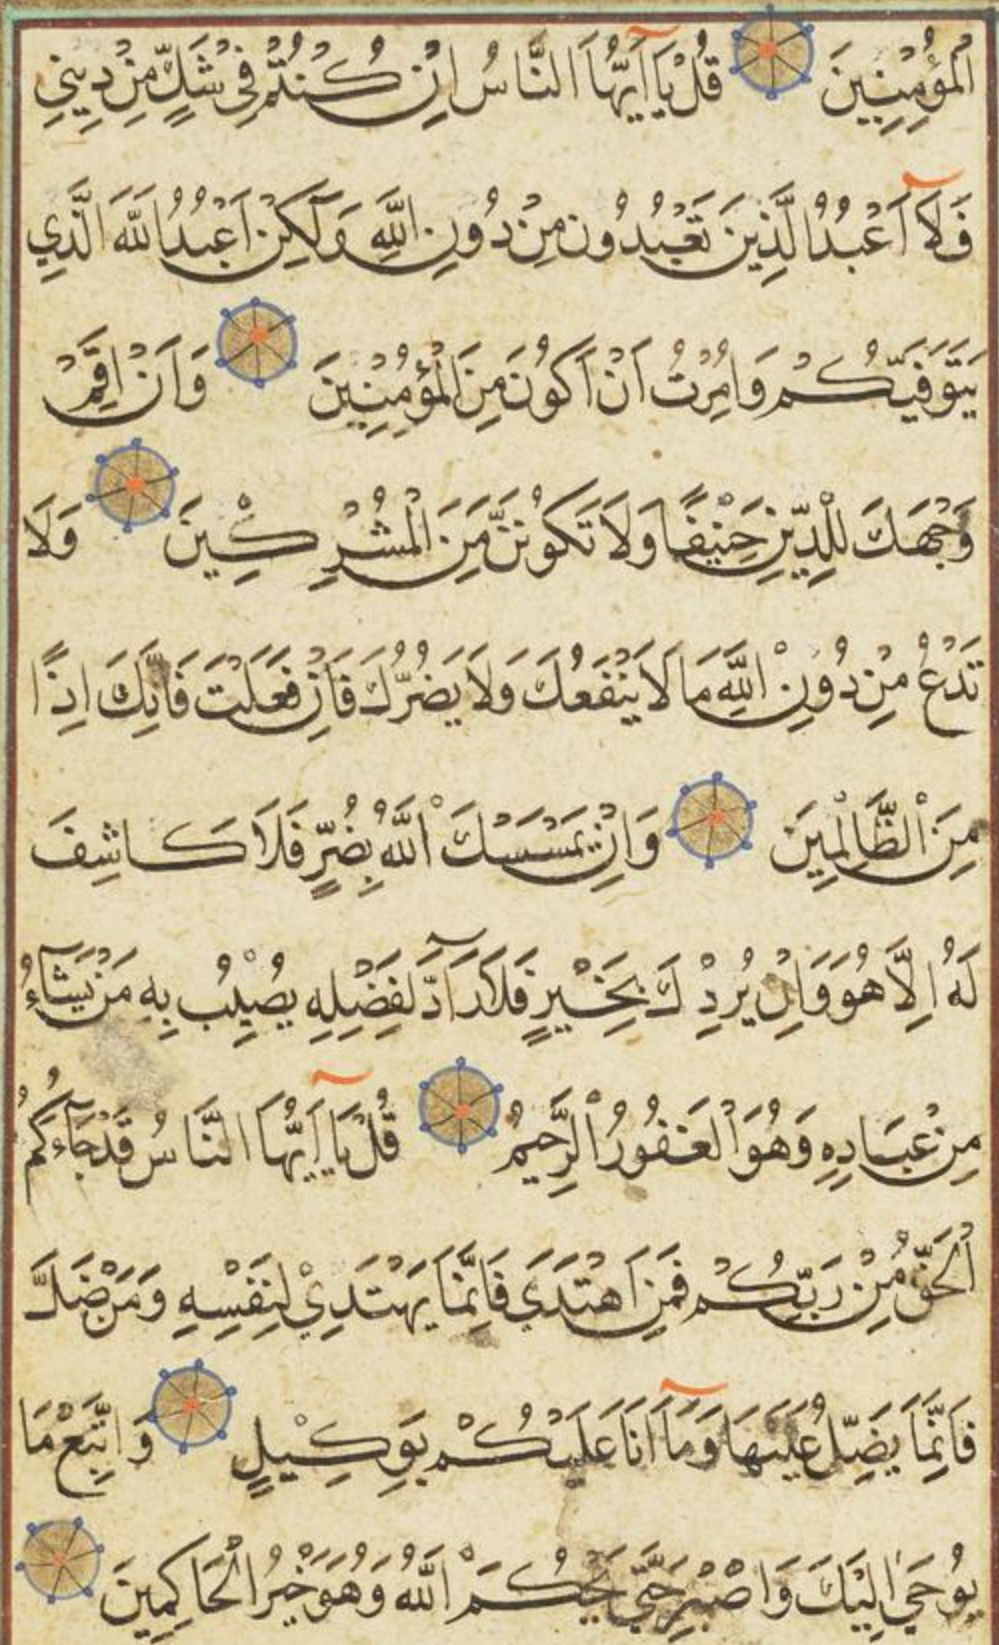 الْمُؤْمِنِينَ قُلْ يَا أَيُّهَا النَّاسُ اِنْ كُنْتُمْ فِي شَكٍّ مِنْ دِينِي
فَلَا أَعْبُدُ الَّذِينَ تَعْبُدُونَ مِنْ دُونِ اللَّهِ وَلَكِنْ أَعْبُدُ اللَّهَ الَّذِي
يَتَوَفَّيكُمْ وَاُمِرْتُ أَنْ أَكُونَ مِنَ الْمُؤْمِنِينَ وَأَنْ اَقِمْ
وَجْهَكَ لِلدِّينِ حَنِيفًا وَلَا تَكُونَنَّ مِنَ الْمُشْرِكِينَ وَلَا
تَدْعُ مِنْ دُونِ اللَّهِ مَا لَا يَنْفَعُكَ وَلَا يَضُرُّكَ فَاِنْ فَعَلْتَ فَاِنَّكَ اِذًا
مِنَ الظَّالِمِينَ وَاِنْ يَمْسَسْكَ اللَّهُ بِضُرٍّ فَلَا كَاشِفَ
لَهُ اِلَّا هُوَ وَاِنْ يُرِدْكَ بِخَيْرٍ فَلَا رَادَّ لِفَضْلِهِ يُصِيبُ بِهِ مَنْ يَشَاءُ
مِنْ عِبَادِهِ وَهُوَ الْغَفُورُ الرَّحِيمُ قُلْ يَا أَيُّهَا النَّاسُ قَدْ جَاءَكُمُ
الْحَقُّ مِنْ رَبِّكُمْ فَمَنِ اهْتَدَى فَاِنَّمَا يَهْتَدِيْ لِنَفْسِهِ وَمَنْ ضَلَّ
فَاِنَّمَا يَضِلُّ عَلَيْهَا وَمَآ اَنَا عَلَيْكُمْ بِوَكِيْلٍ وَاتَّبِعْ مَا
يُوحَى اِلَيْكَ وَاصْبِرْ حَتَّى يَحْكُمَ اللَّهُ وَهُوَ خَيْرُ الْحَاكِمِينَ